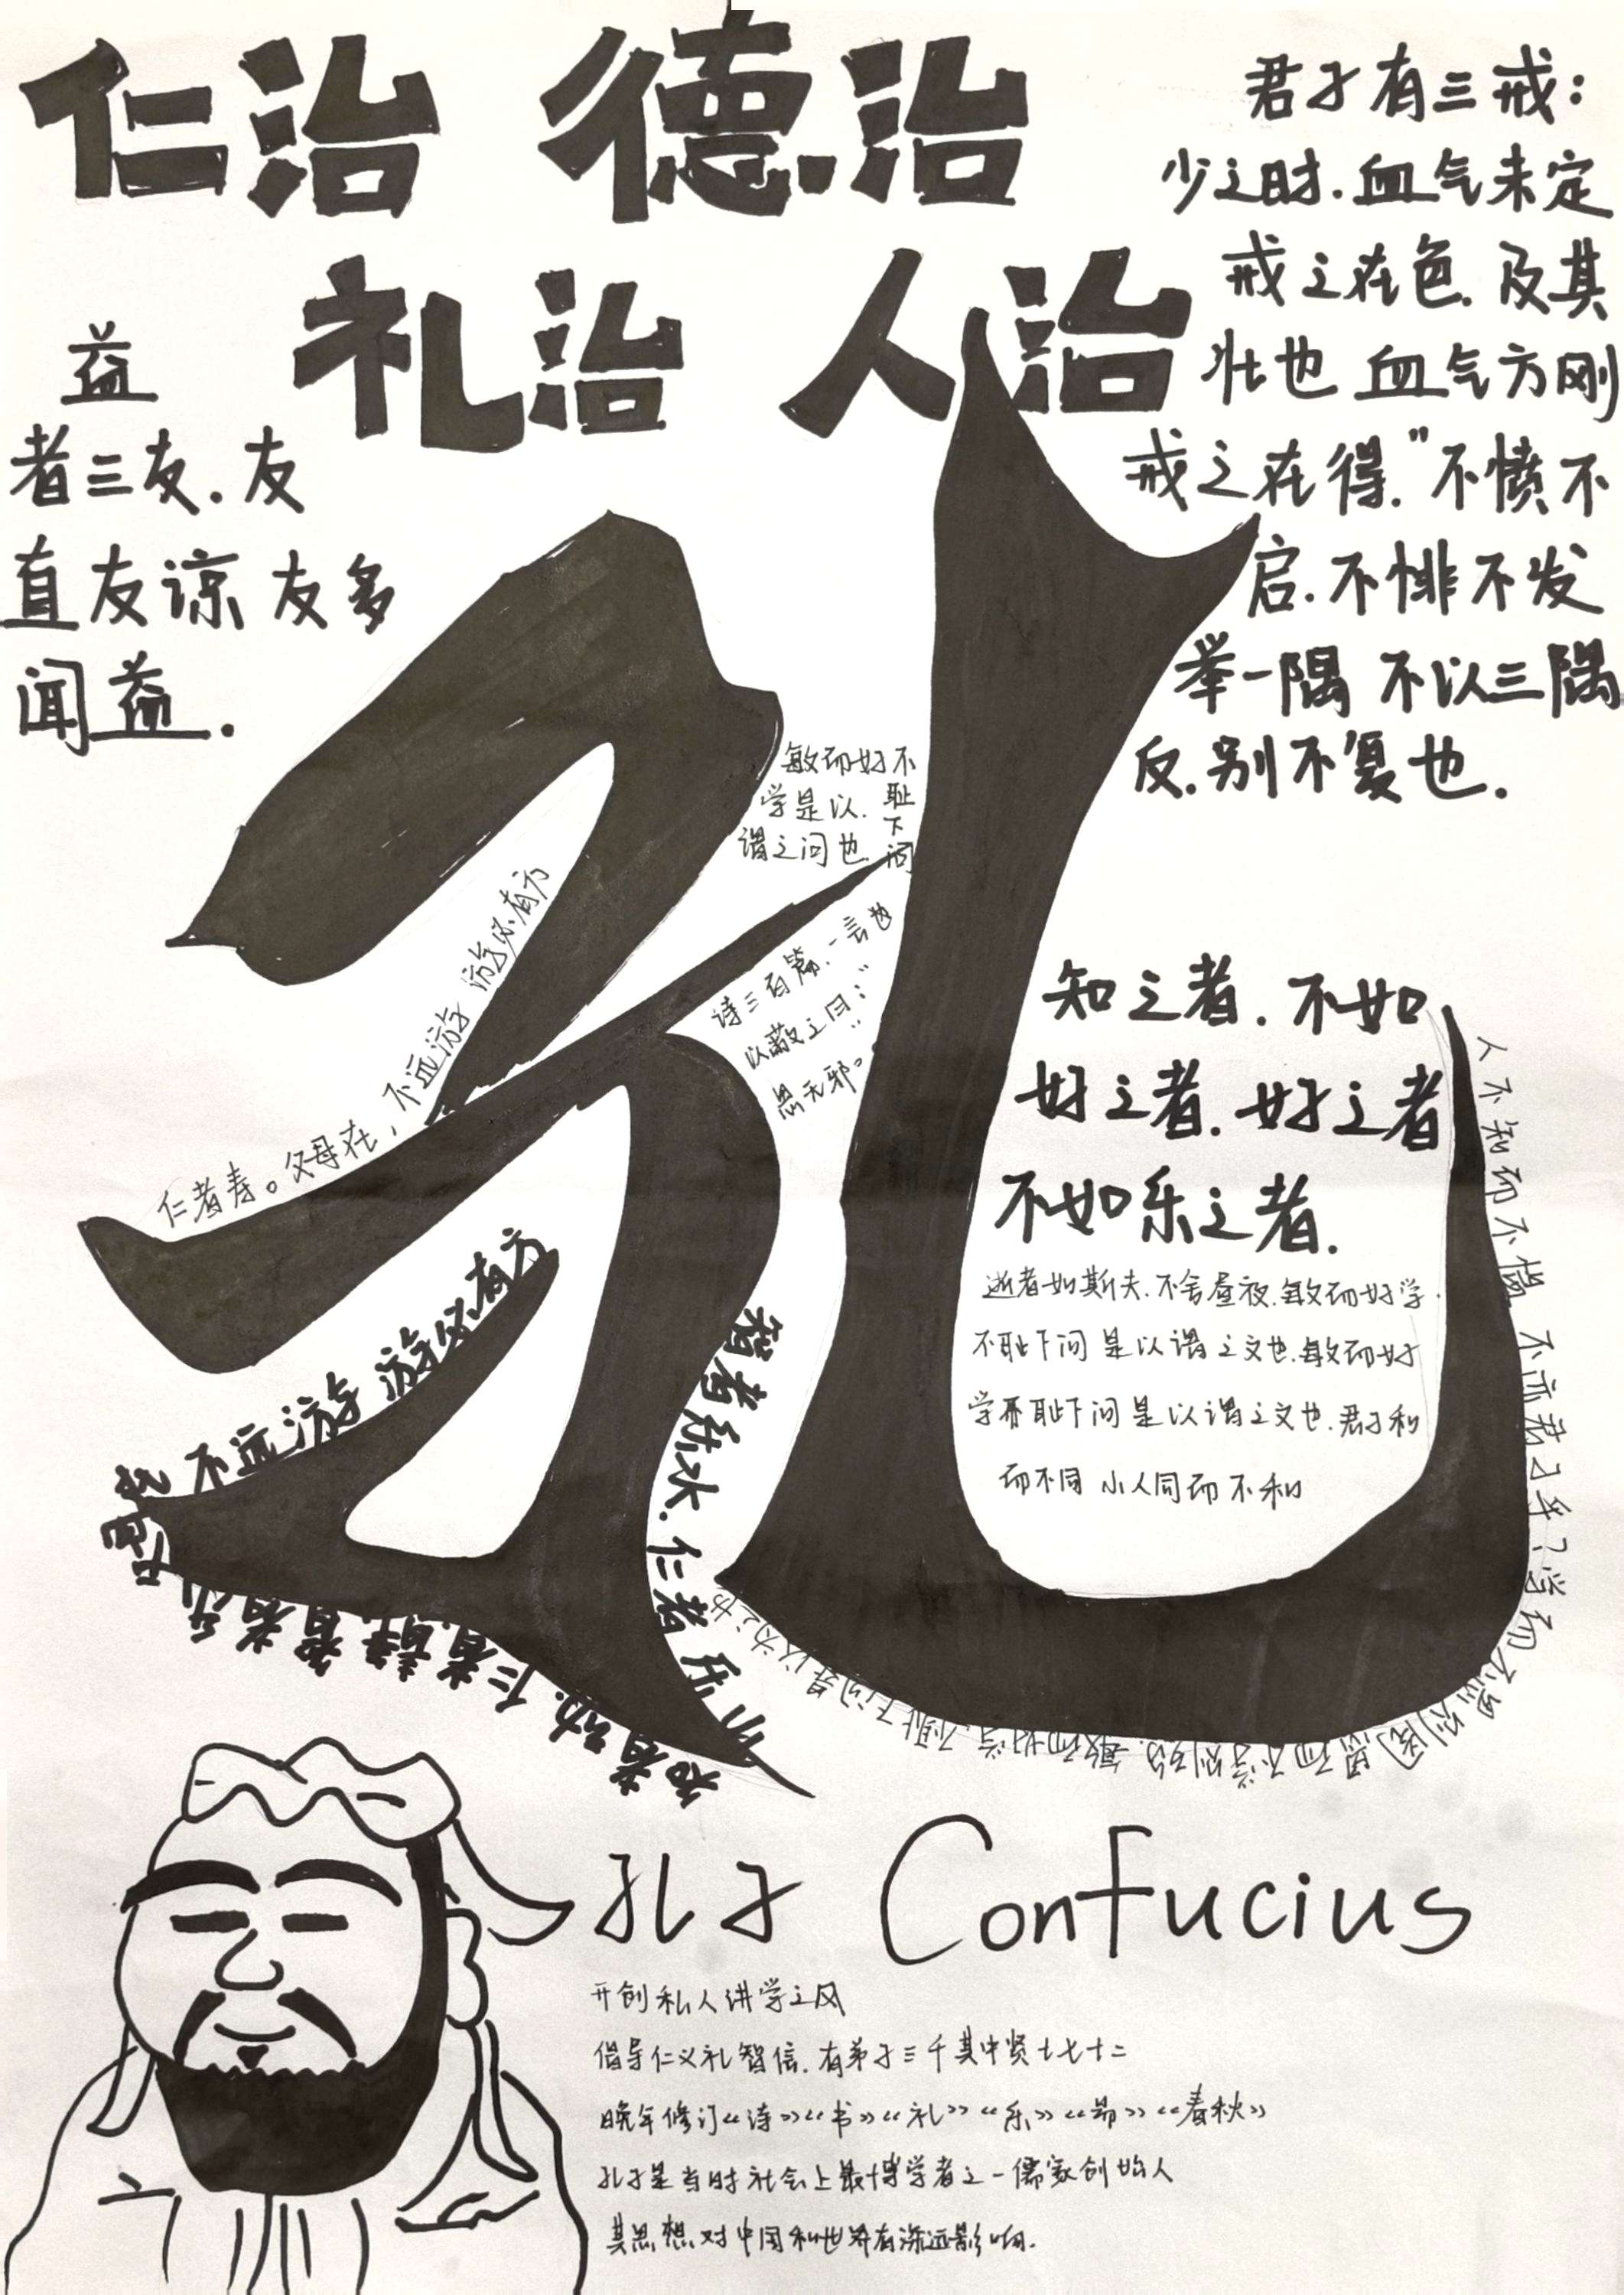 仁治 德治
礼治 人治
君子有三戒：
少之时.血气未定
戒之在色.及其
壮也 血气方刚
戒之在得."不愤不
启.不悱不发
举一隅 不以三隅
反.别不复也.
益
者三友.友
直友谅 友多
闻益.
孔
敏而好不
学是以.耻
谓之问也.下
问
诗三百篇.一言也
以蔽之曰："
思无邪。"
仁者寿。父母在，不远游 游必有方
不远游 游必有方
智者乐水.仁者乐
知者动.仁者静.
知之者.不如
好之者.好之者
不如乐之者.
逝者如斯夫.不舍昼夜.敏而好学.
不耻下问 是以谓之文也.敏而好
学不耻下问是以谓之文也.君子和
而不同 小人同而不和
人不知而不愠 不亦君子乎？学而不思则罔 思而不学则殆.敏而好学.不耻下问是以为之也
孔子 Confucius
开创私人讲学之风
倡导仁义礼智信.有弟子三千其中贤士七十二
晚年修订《诗》《书》《礼》《乐》《易》《春秋》
孔子是当时社会上最博学者之一儒家创始人
其思想对中国和世界有深远影响.